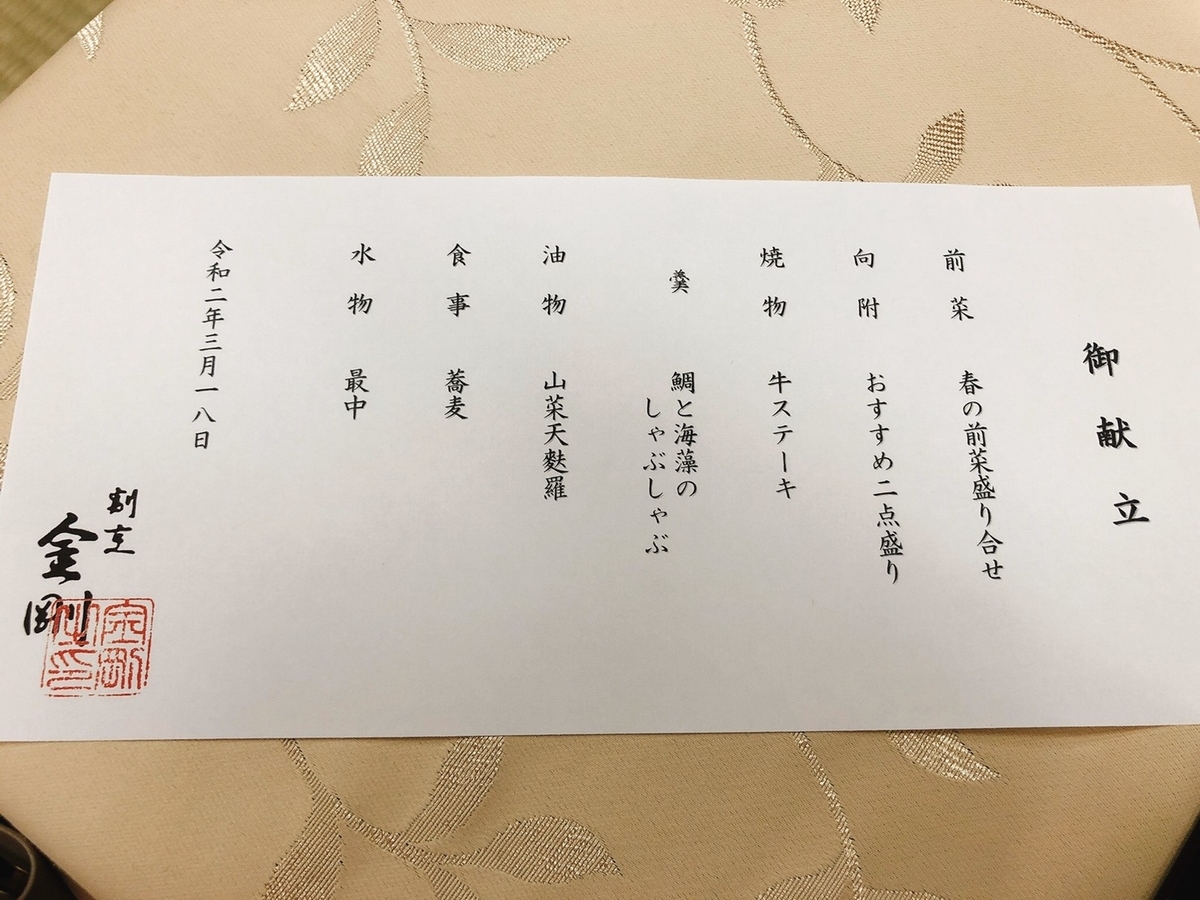 御献立
前菜 春の前菜盛り合せ
向附 おすすめ二点盛り
焼物 牛ステーキ
羹 鯛と海藻の
しゃぶしゃぶ
油物 山菜天麩羅
食事 蕎麦
水物 最中
令和二年三月一八日
割烹
金剛
金剛
之印